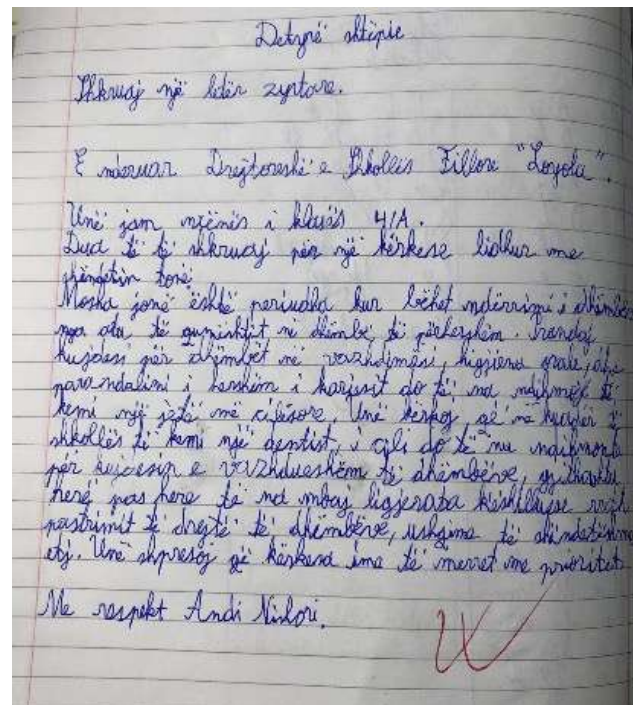 Detyrë shtëpie
Shkruaj një letër zyrtare.
E nderuar Drejtoreshë e Shkollës Fillore "Loyola".
Unë jam nxënës i klasës 4/A.
Dua të të shkruaj për një kërkese lidhur me
shëngetin tonë.
Mosha jonë është periudha kur bëhet ndërrimi i dhëmbëve
nga ata të qumështit në dhëmbë të përhershëm. Prandaj
kujdesi për dhëmbët në vazhdimësi, higjiena orale, dhe
parandalimi i hershëm i kariesit do të na ndihmojë të
kemi një jetë më cilësore. Unë kërkoj që në kuadër të
shkollës të kemi një dentist, i cili do të na ndihmonte
për kujdesin e vazhdueshëm të dhëmbëve, gjithashtu
herë pas here të na mbaj ligjerata këshilluese rreth
pastrimit të drejtë të dhëmbëve, ushqime të shëndetshme
etj. Unë shpresoj që kërkesa ime të merret me prioritet.
Me respekt Andi Nishori.